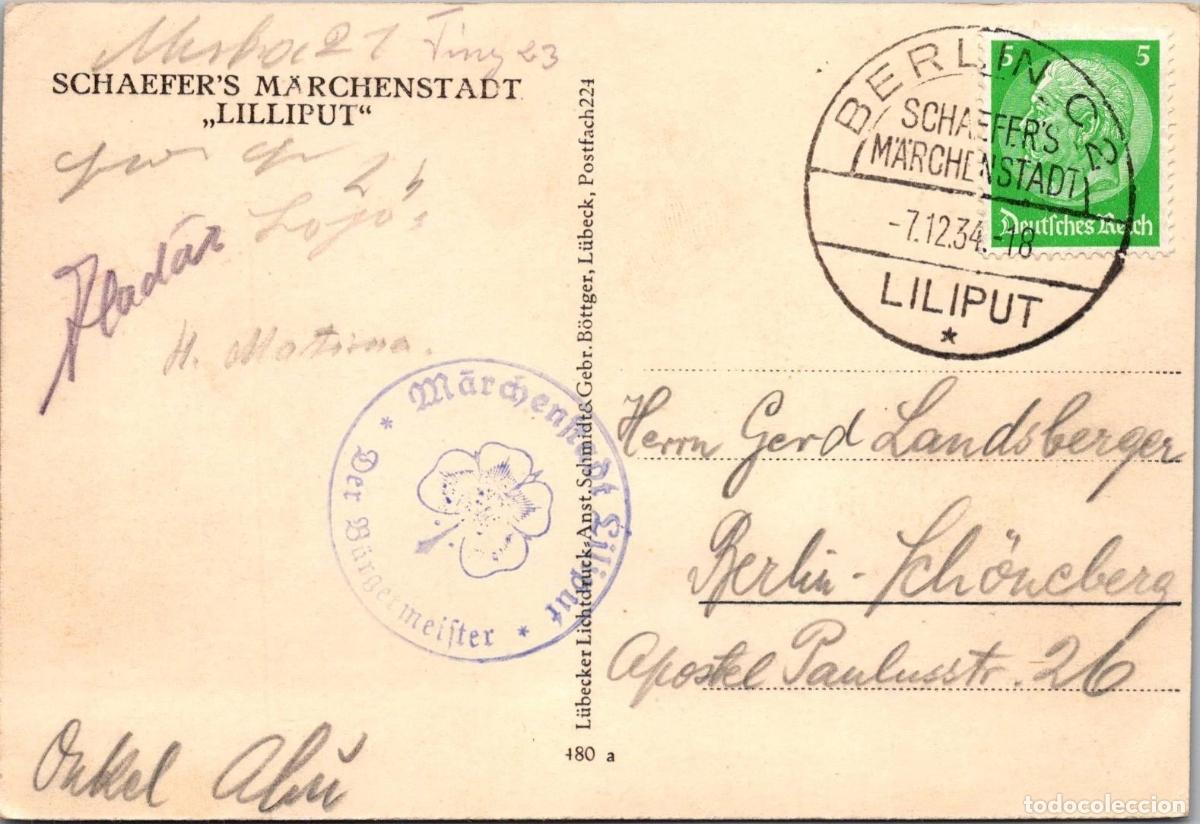 SCHAEFER'S MÄRCHENSTADT
„LILLIPUT“
Aladár
H.
Märchenstadt Liliput
* Der Bürgermeister *
Onkel
Lübecker Lichtdruck-Anst. Schmidt & Gebr. Böttger, Lübeck, Postfach 224
480 a
BERLIN C2
SCHAEFER'S
MÄRCHENSTADT
-7.12.34.-18
LILIPUT
*
5 5
Deutsches Reich
Herrn Gerd Landsberger
Berlin-Schöneberg
Apostel Paulusstr. 26
todocoleccion